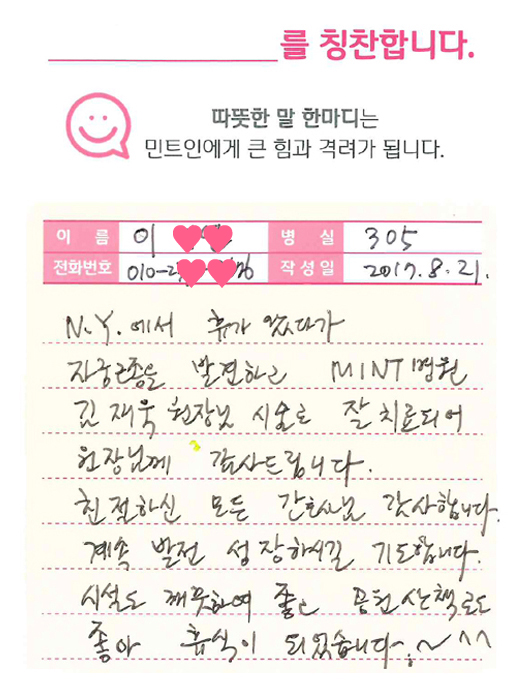 를 칭찬합니다.
따뜻한 말 한마디는
민트인에게 큰 힘과 격려가 됩니다.
이 름 이 병 실 305
전화번호 010-2 작성일 2017.8.21.
N.Y.에서 휴가 왔다가
자궁근종을 발견하고 MINT병원
김재욱 원장님 시술로 잘 치료되어
원장님께 감사드립니다.
친절하신 모든 간호사님 감사합니다.
계속 발전 성장하시길 기도합니다.
시설도 깨끗하여 좋고 옹천 산책로도
좋아 휴식이 되었습니다.~^^